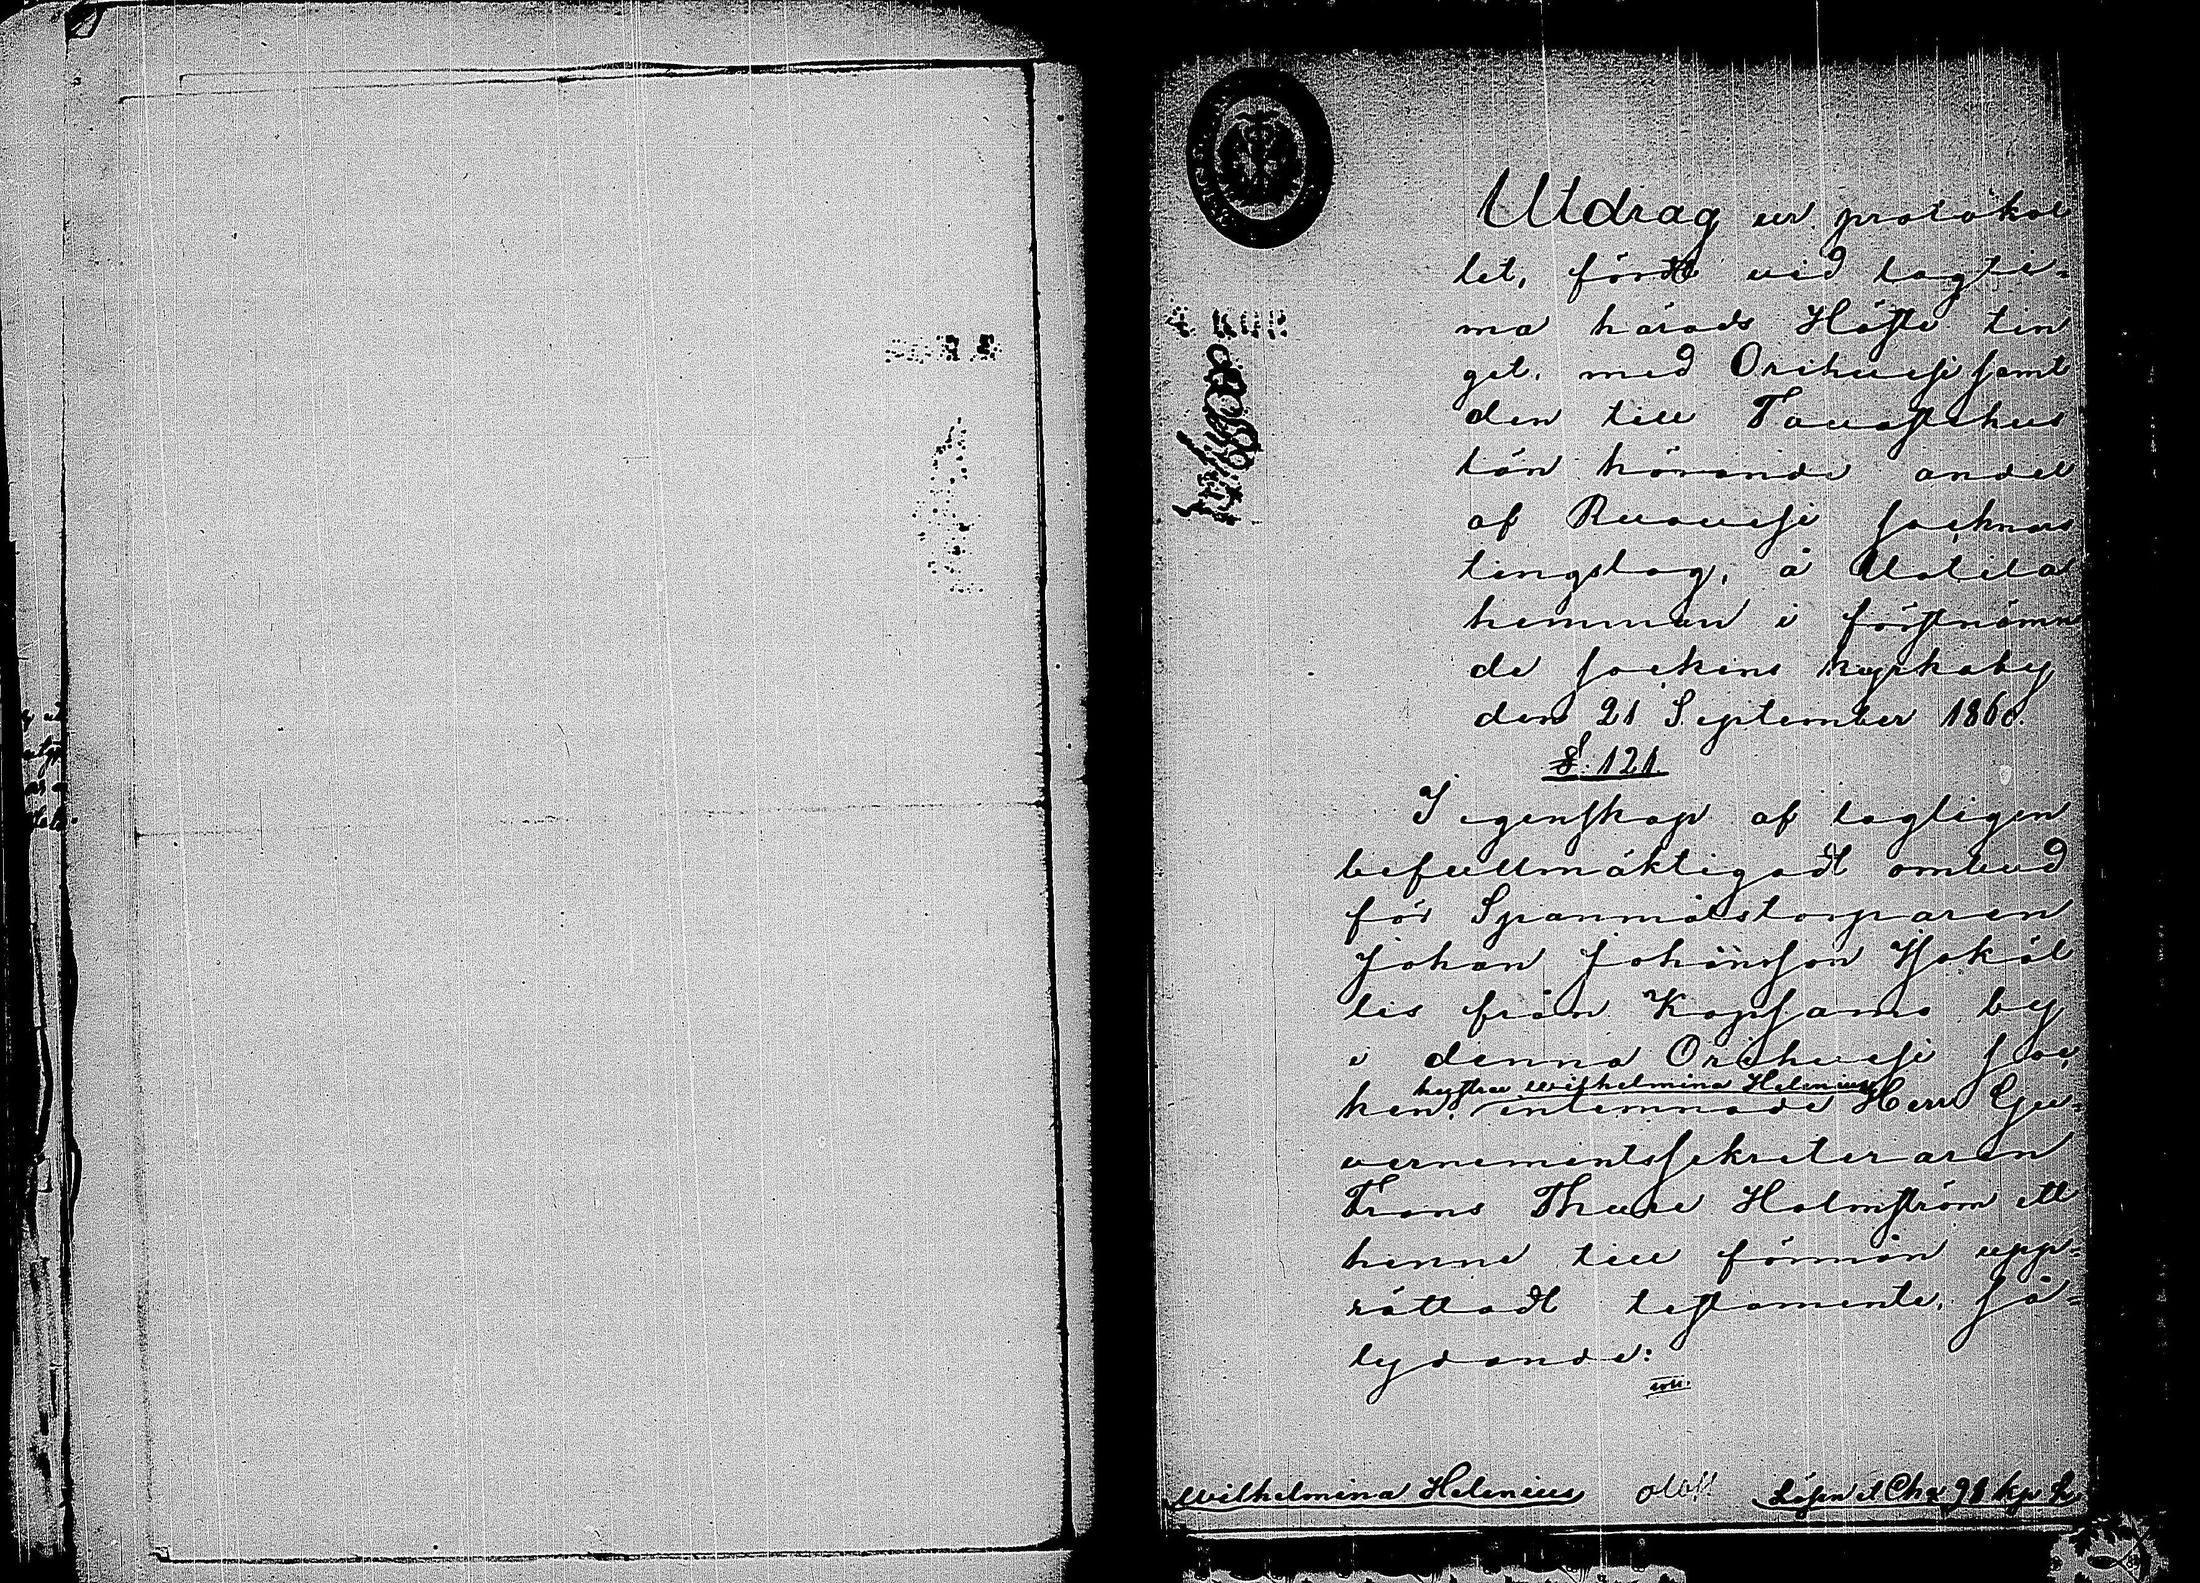 Utdrag ur protokol
let, fördt vid lagti-
ma härads Höste tin
get, med Orihvesi samt
den till Tavastehus
län hörande andel
af Ruovesi socknars
tingslag, å Uotila
hemman i förstnämn
de sockens kyrkoby
den 21 September 1860.
§. 121
I egenskap af lagligen
befullmäktigadt ombud
för Spanmålstorparen
Johan Johansson
lis från Kopsamo by
i denna Orihvesi soc,
hustru Wilhelmina Helenius
ken, inlemnade Herr Gu-
vernementssekreteraren
Frans Thure Holmström ett
henne till förmån upp-
rättadt testamente, så-
lydande:
Wilhelmina Helenius Lösen et Cha 98 kop S